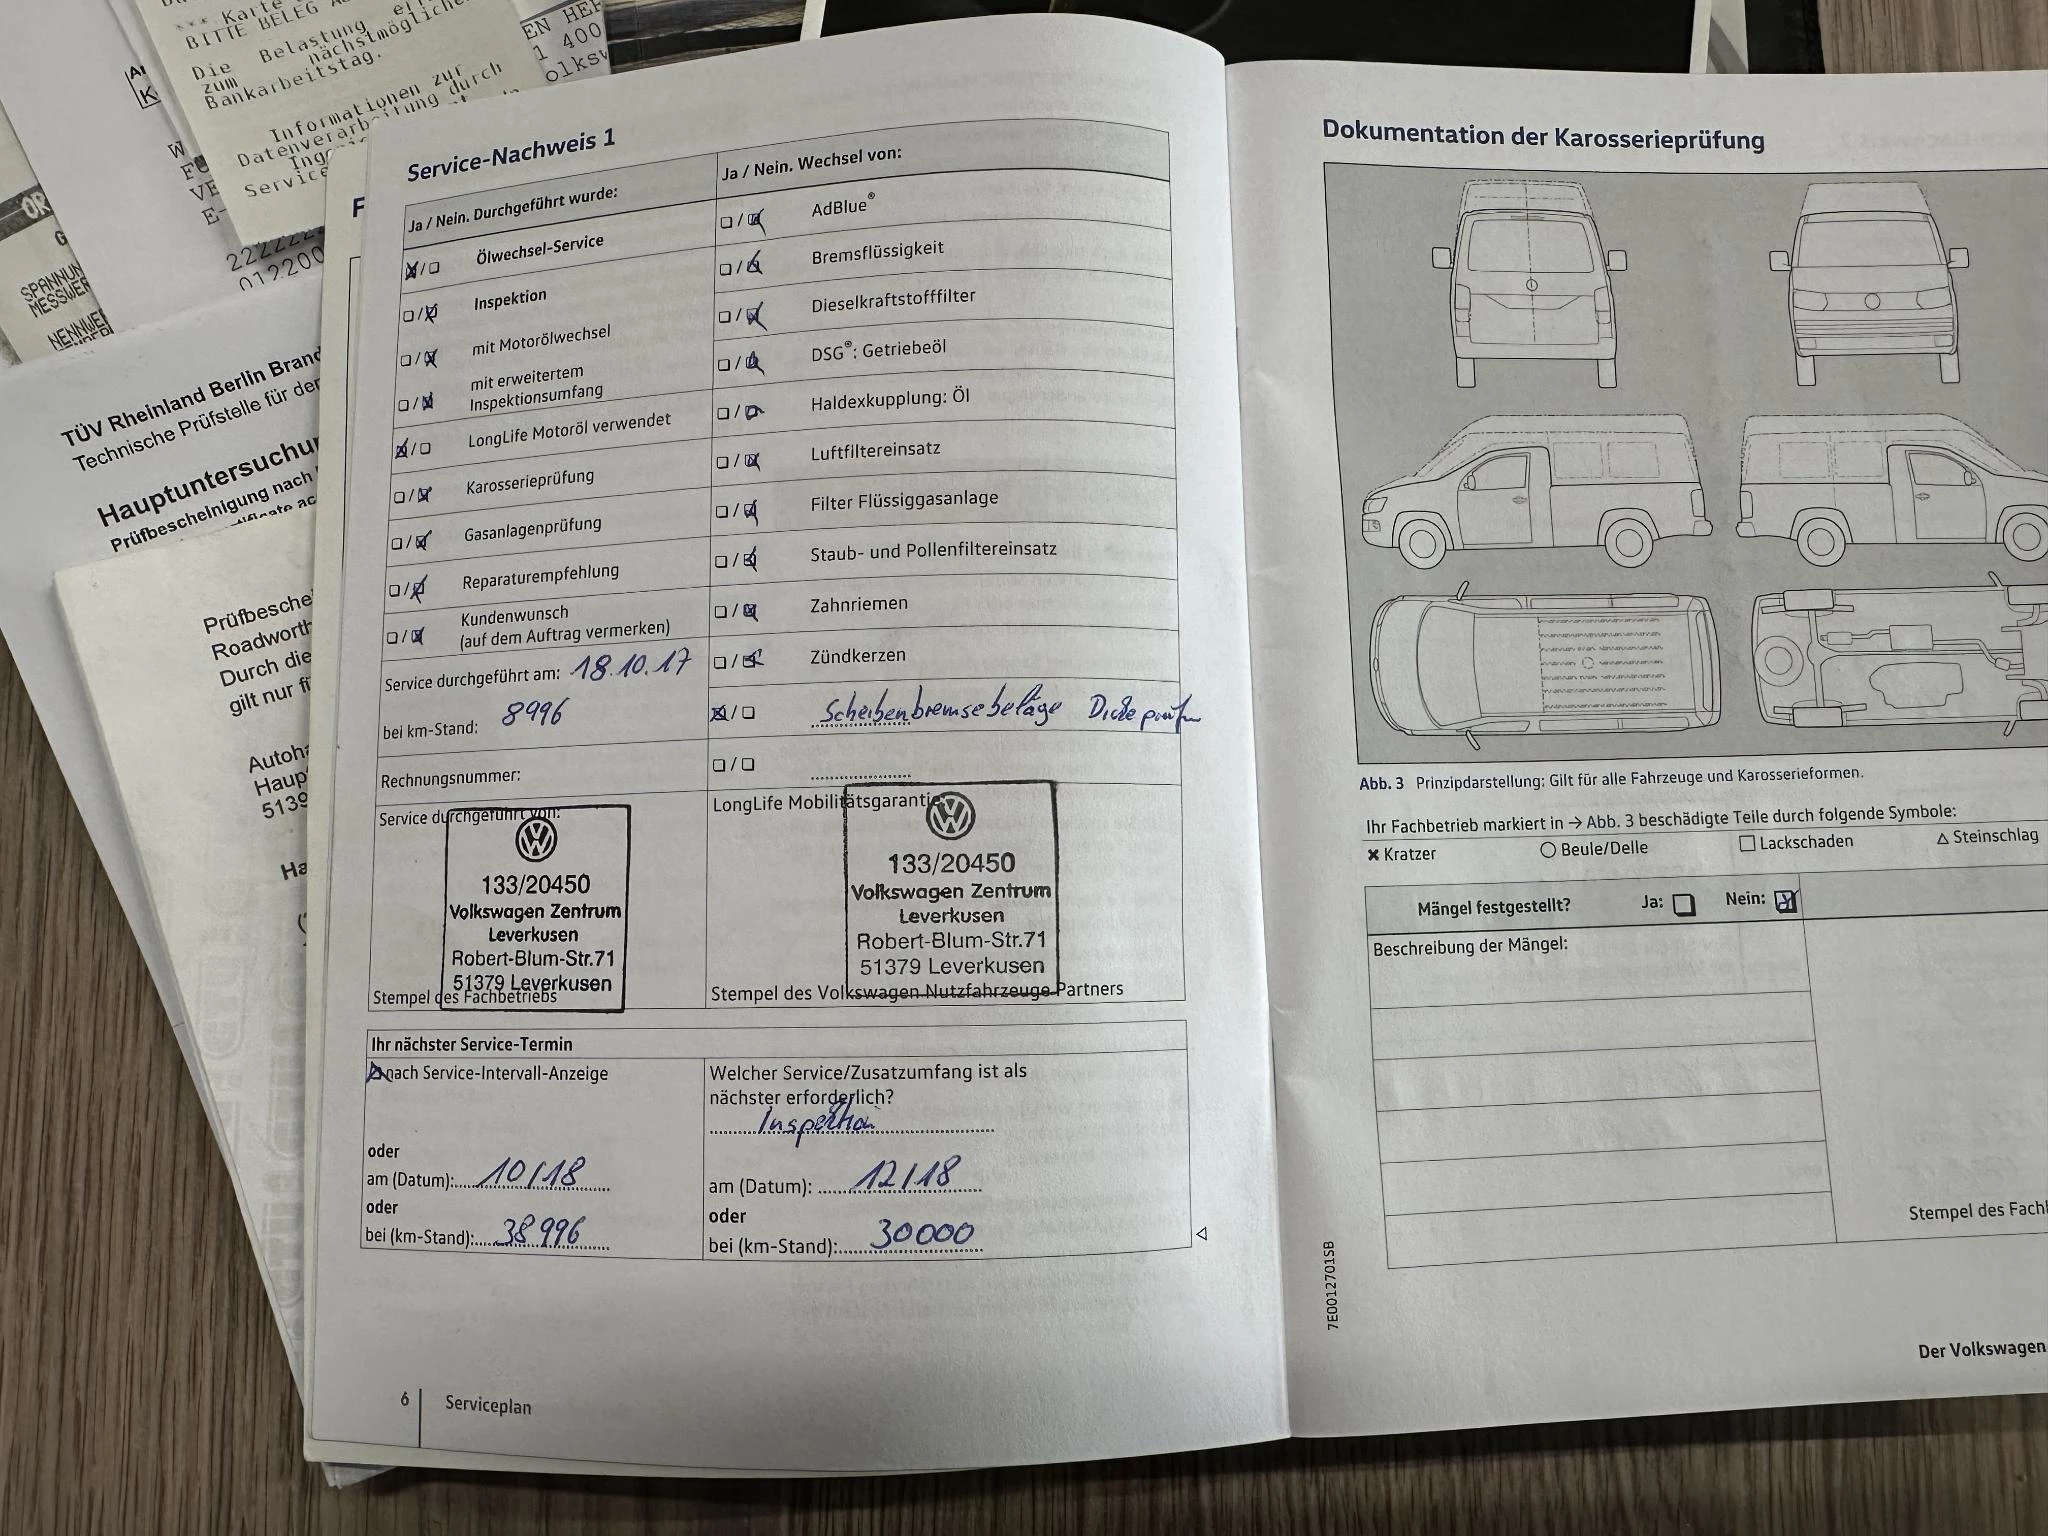 *** Karte
BITTE BELEG
Die Belastung
zum nächstmöglichen
Bankarbeitstag.
Informationen zur
Datenverarbeitung durch
Service
EN HER
1 400
olksw
22222
012200
SPANNUN
MESSWER
NENNWE
TÜV Rheinland Berlin Brand
Technische Prüfstelle für der
Hauptuntersuchun
Prüfbescheinigung nach
Prüfbeschei
Roadworth
Durch die
gilt nur f
Autoha
Haup
5139
Ha
Service-Nachweis 1
Ja / Nein. Durchgeführt wurde:
Ölwechsel-Service
Inspektion
mit Motorölwechsel
mit erweitertem
Inspektionsumfang
LongLife Motoröl verwendet
Karosserieprüfung
Gasanlagenprüfung
Reparaturempfehlung
Kundenwunsch
(auf dem Auftrag vermerken)
Service durchgeführt am: 18.10.17
bei km-Stand: 8996
Rechnungsnummer:
Service durchgeführt von:
133/20450
Volkswagen Zentrum
Leverkusen
Robert-Blum-Str.71
51379 Leverkusen
Stempel des Fachbetriebs
Ja / Nein. Wechsel von:
AdBlue®
Bremsflüssigkeit
Dieselkraftstofffilter
DSG®: Getriebeöl
Haldexkupplung: Öl
Luftfiltereinsatz
Filter Flüssiggasanlage
Staub- und Pollenfiltereinsatz
Zahnriemen
Zündkerzen
Scheibenbremsebeläge Dicke prüfen
LongLife Mobilitätsgarantie
133/20450
Volkswagen Zentrum
Leverkusen
Robert-Blum-Str.71
51379 Leverkusen
Stempel des Volkswagen Nutzfahrzeuge Partners
Ihr nächster Service-Termin
nach Service-Intervall-Anzeige
oder
am (Datum): 10/18
oder
bei (km-Stand): 38996
Welcher Service/Zusatzumfang ist als
nächster erforderlich?
Inspektion
am (Datum): 12/18
oder
bei (km-Stand): 30000
6 Serviceplan
Dokumentation der Karosserieprüfung
Abb. 3 Prinzipdarstellung: Gilt für alle Fahrzeuge und Karosserieformen.
Ihr Fachbetrieb markiert in → Abb. 3 beschädigte Teile durch folgende Symbole:
✖ Kratzer ○ Beule/Delle □ Lackschaden △ Steinschlag
Mängel festgestellt? Ja: Nein:
Beschreibung der Mängel:
Stempel des Fachb
7E0012701SB
Der Volkswagen